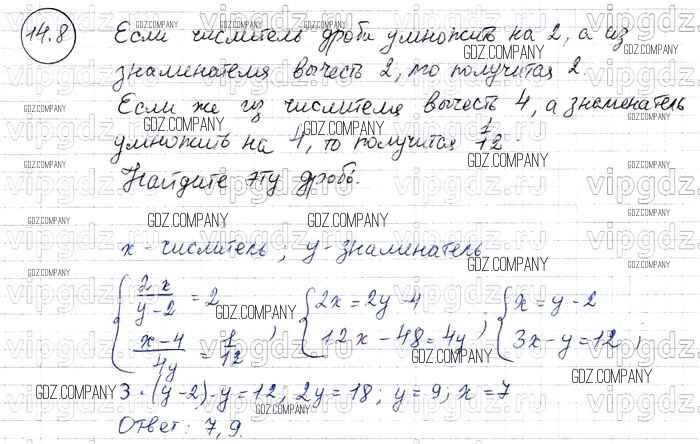 14.8 Если числитель дроби умножить на 2, а из
знаменателя вычесть 2, то получится 2.
Если же из числителя вычесть 4, а знаменатель
умножить на 4, то получится 1/12.
Найдите эту дробь.
x - числитель, y - знаменатель
{ 2x/(y-2) = 2 ; (x-4)/4y = 1/12 , { 2x = 2y - 4 ; 12x - 48 = 4y , { x = y - 2 ; 3x - y = 12 ,
3·(y-2)-y = 12, 2y = 18; y = 9; x = 7
Ответ: 7,9.
GDZ.COMPANY
vipgdz.ru